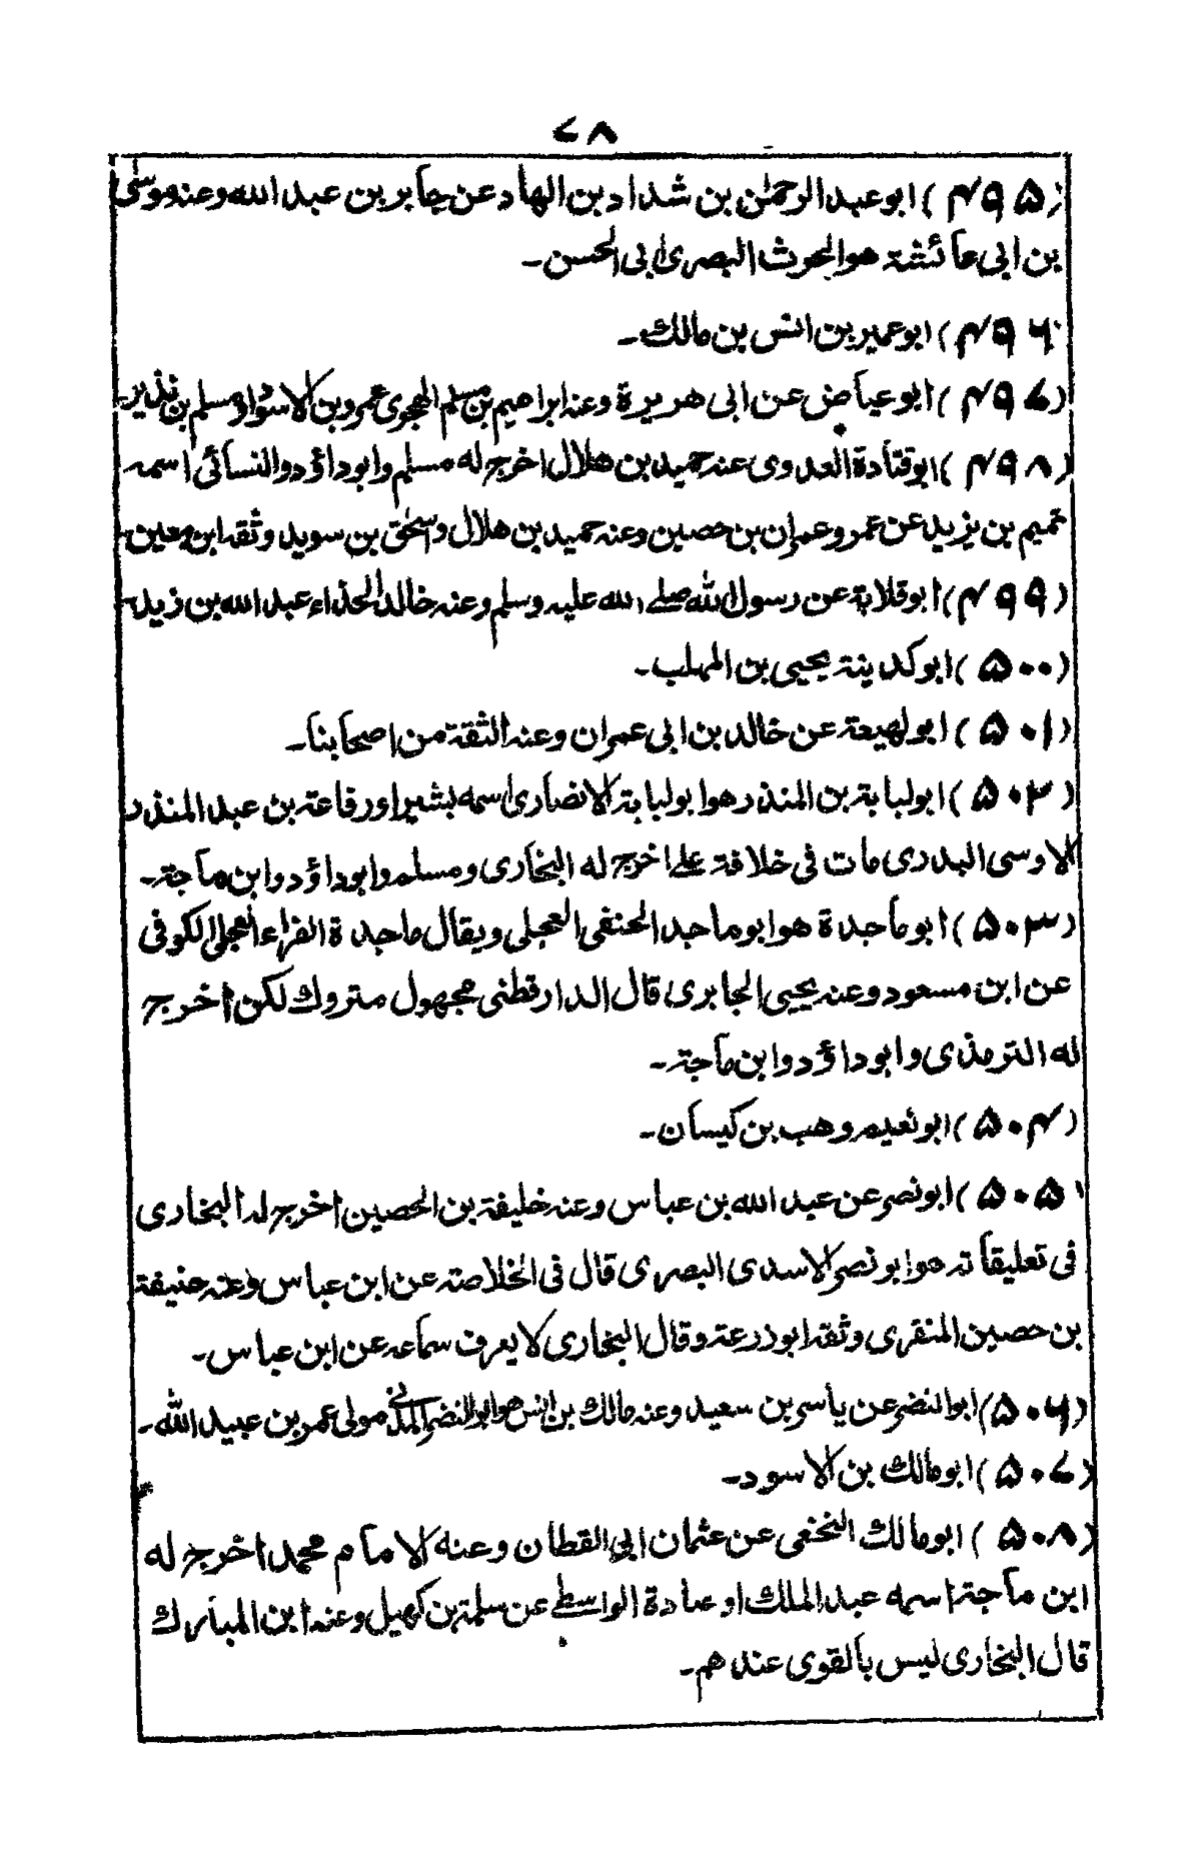 ۷۸
(۴۹۵) ابو عبد الرحمٰن بن شداد بن الهاد عن جابر بن عبد الله وعنه موسٰی
بن ابی عائشة هو الحرث البصری ابی الحسن۔
۴۹۶) ابو عمیر بن انس بن مالك۔
(۴۹۷) ابو عیاض عن ابی هریرة وعنه ابراهیم بن مسلم الهجری عمرو بن الاسود او مسلم بن نذیر۔
(۴۹۸) ابو قتادة العدوی عنه حمید بن هلال اخرج له مسلم وابو داؤد والنسائی اسمه
تمیم بن یزید عن عمر وعمران بن حصین وعنه حمید بن هلال واسحٰق بن سوید وثقه ابن معین۔
(۴۹۹) ابو قلابة عن رسول الله صلے الله علیه وسلم وعنه خالد الحذاء عبد الله بن زید۔
(۵۰۰) ابو کدینة یحیی بن المهلب۔
(۵۰۱) ابو لهیعة عن خالد بن ابی عمران وعنه الثقة من اصحابنا۔
(۵۰۳) ابو لبابة بن المنذر هو ابو لبابة الانصاری اسمه بشیر او رفاعة بن عبد المنذر
الاوسی البدری مات فی خلافة علے اخرج له البخاری ومسلم وابو داؤد وابن ماجة۔
(۵۰۳) ابو ماجدة هو ابو ماجد الحنفی العجلی ویقال ماجدة الفراء العجلی الکوفی
عن ابن مسعود وعنه یحیی الجابری قال الدارقطنی مجهول متروك لکن اخرج
له الترمذی وابو داؤد وابن ماجة۔
(۵۰۴) ابو نعیم وهب بن کیسان۔
۵۰۵) ابو نصر عن عبد الله بن عباس وعنه خلیفة بن الحصین اخرج له البخاری
فی تعلیقاته هو ابو نصر الاسدی البصری قال فی الخلاصة عن ابن عباس وعنه حنیفة
بن حصین المنقری وثقه ابو زرعة وقال البخاری لا یعرف سماعه عن ابن عباس۔
(۵۰۶) ابو النضر عن یاسر بن سعید وعنه مالك بن انس هو ابو النضر المدنی مولی عمر بن عبید الله۔
(۵۰۷) ابو مالك بن الاسود۔
(۵۰۸) ابو مالك النخعی عن عثمان ابی القطان وعنه الامام محمد اخرج له
ابن ماجة اسمه عبد الملك او عبادة الواسطے عن سلمة بن کهیل وعنه ابن المبارك
قال البخاری لیس بالقوی عندهم۔